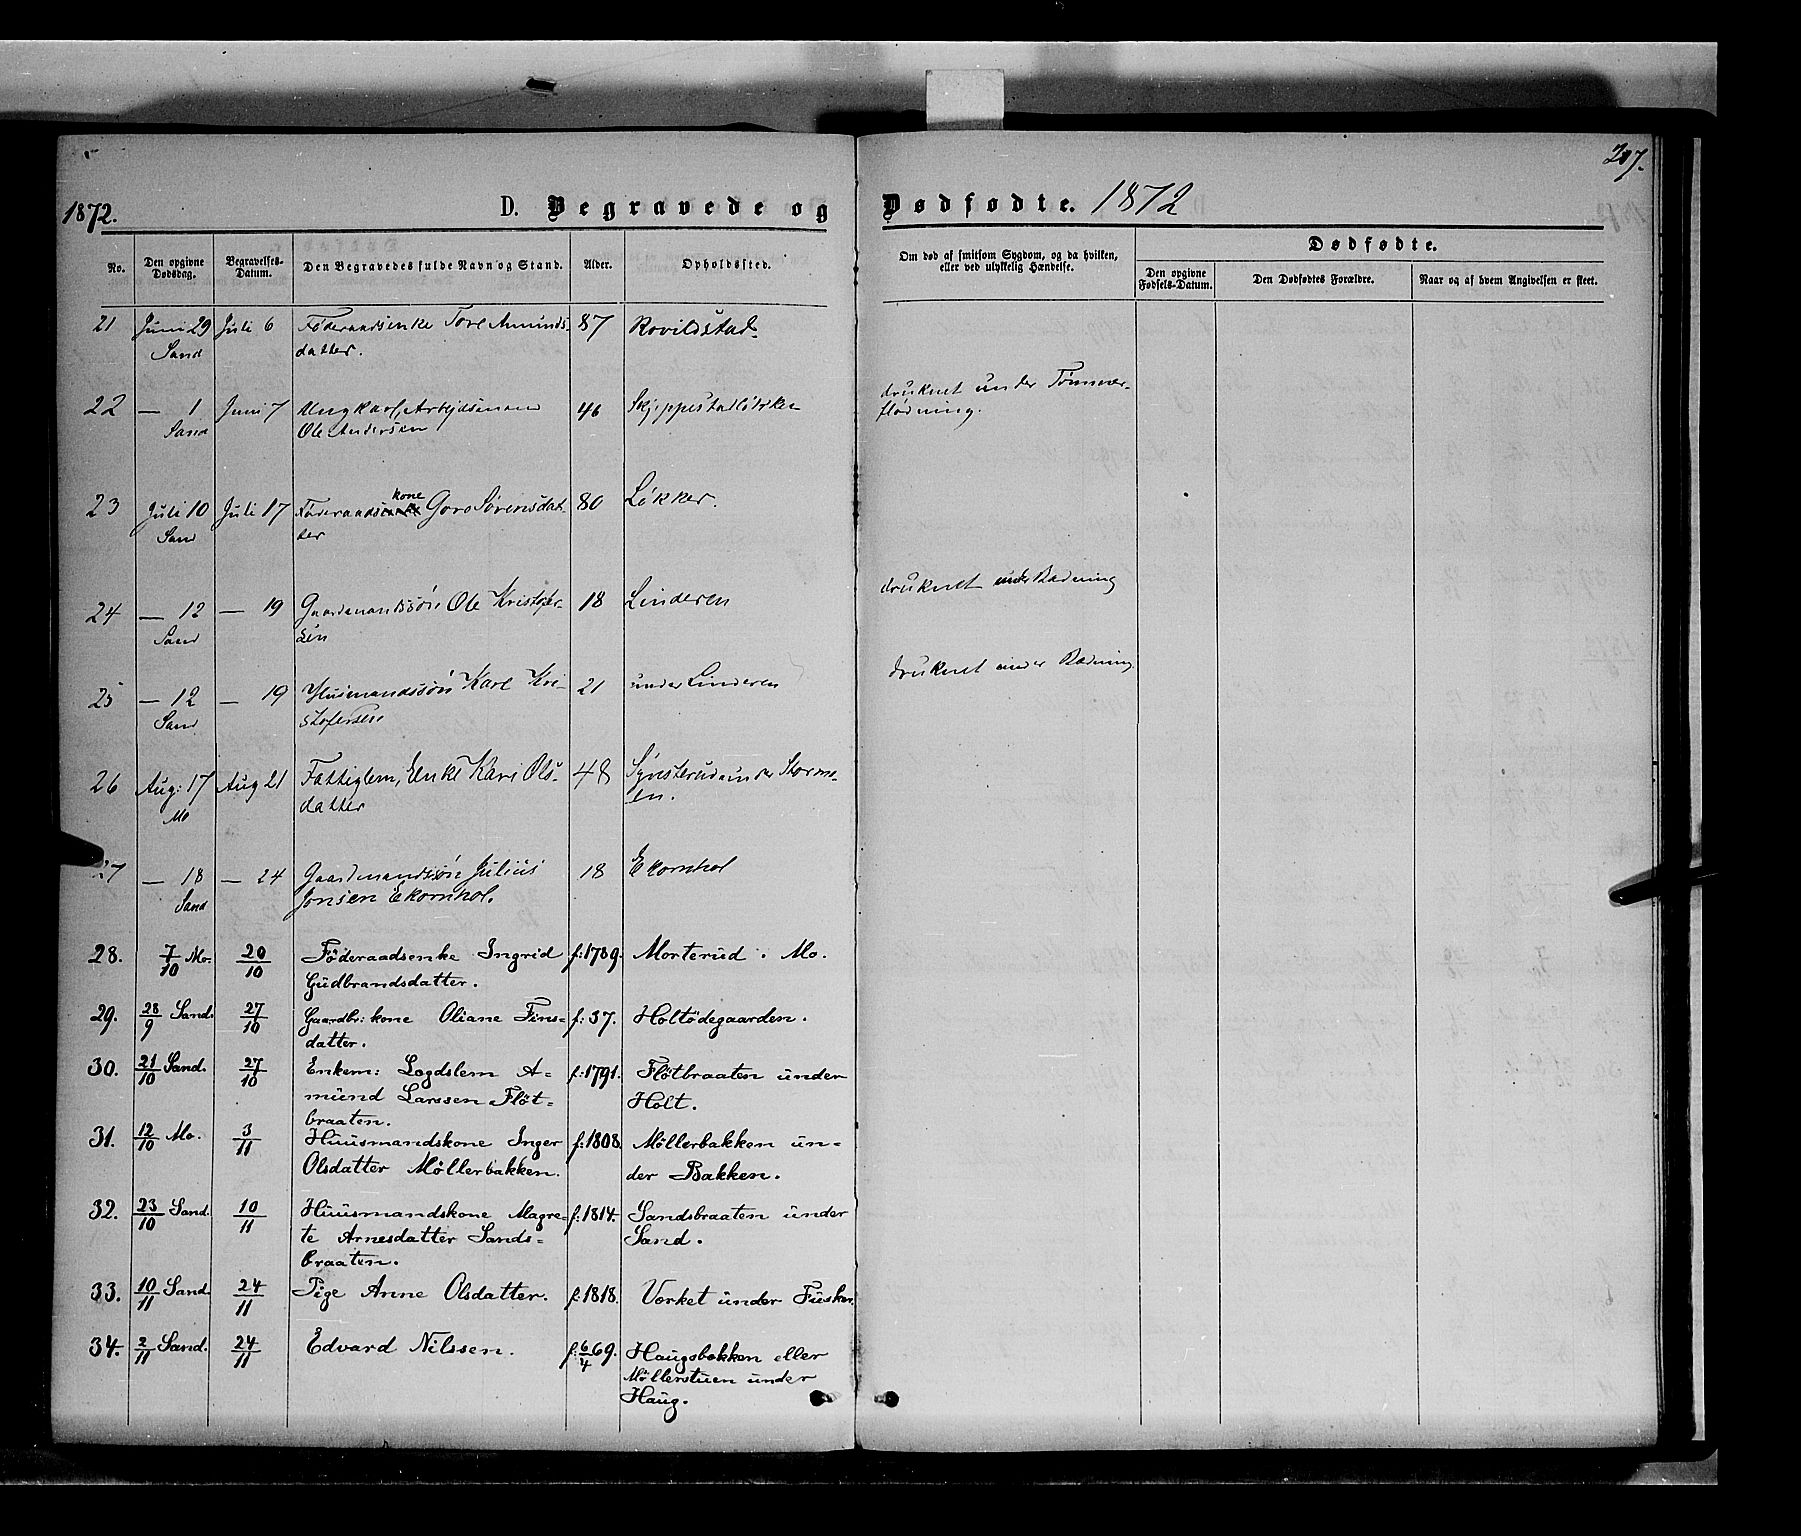 207.
1872. D. Begravede og Dødfødte. 1872
No. Den opgivne Dødsdag. Begravelses-Datum. Den Begravedes fulde Navn og Stand. Alder. Opholdssted. Om død af smitsom Sygdom, og da hvilken, eller ved ulykkelig Hændelse. Dødfødte.
Den opgivne Fødsels-Datum. Den Dødfødtes Forældre. Naar og af hvem Angivelsen er skeet.
21 Juni 29 Juli 6 Föderaadsenke Tore Amunds- 87 Rovildstad
Sand datter.
22 — 1 Juni 7 Ungkarl, Arbejdsmand 46 druknet under Tømmer-
Sand Ole Andersen flødning.
23 Juli 10 Juli 17 Föderaadskone Goro Sörensdat- 80 Lökker.
Sand ter
24 — 12 — 19 Gaardmandssön Ole Kristofer- 18 Linderen druknet under Badning
Sand sen
25 — 12 — 19 Husmandssön Karl Kri- 21 under Linderen druknet under Badning
Sand stofersen
26 Aug: 17 Aug 21 Fattiglem, Enke Kari Ols- 48
Mo datter en.
27 — 18 — 24 Gaardmandssön Julius 18 Ekornhol
Sand Jonsen Ekornhol.
28. 7/10 Mo. 20/10 Föderaadsenke Ingrid f: 1789. Morterud. Mo.
Gudbrandsdatter.
29. 28/9 Sand. 27/10 Gaardbr: kone Oliane Fins- f: 37. Holtödegaarden.
datter.
30. 21/10 Sand. 27/10 Enkem: Lægdslem A- f: 1791. Flötbraaten under
mund Larssen Flöt- Holt.
braaten.
31. 12/10 Mo. 3/11 Huusmandskone Inger f: 1808. Møllerbakken un-
Olsdatter Møllerbakken. der Bakken.
32. 23/10 Sand. 10/11 Huusmandskone Magre- f: 1814. Sandsbraaten under
te Arnesdatter Sands- Sand.
braaten.
33. 10/11 Sand. 24/11 Pige Anne Olsdatter. f: 1818. Værket under Fusker.
34. 2/11 Sand. 24/11 Edvard Nilssen. f: 6/4 69. Haugsbakken eller
Møllerstuen under
Haug.